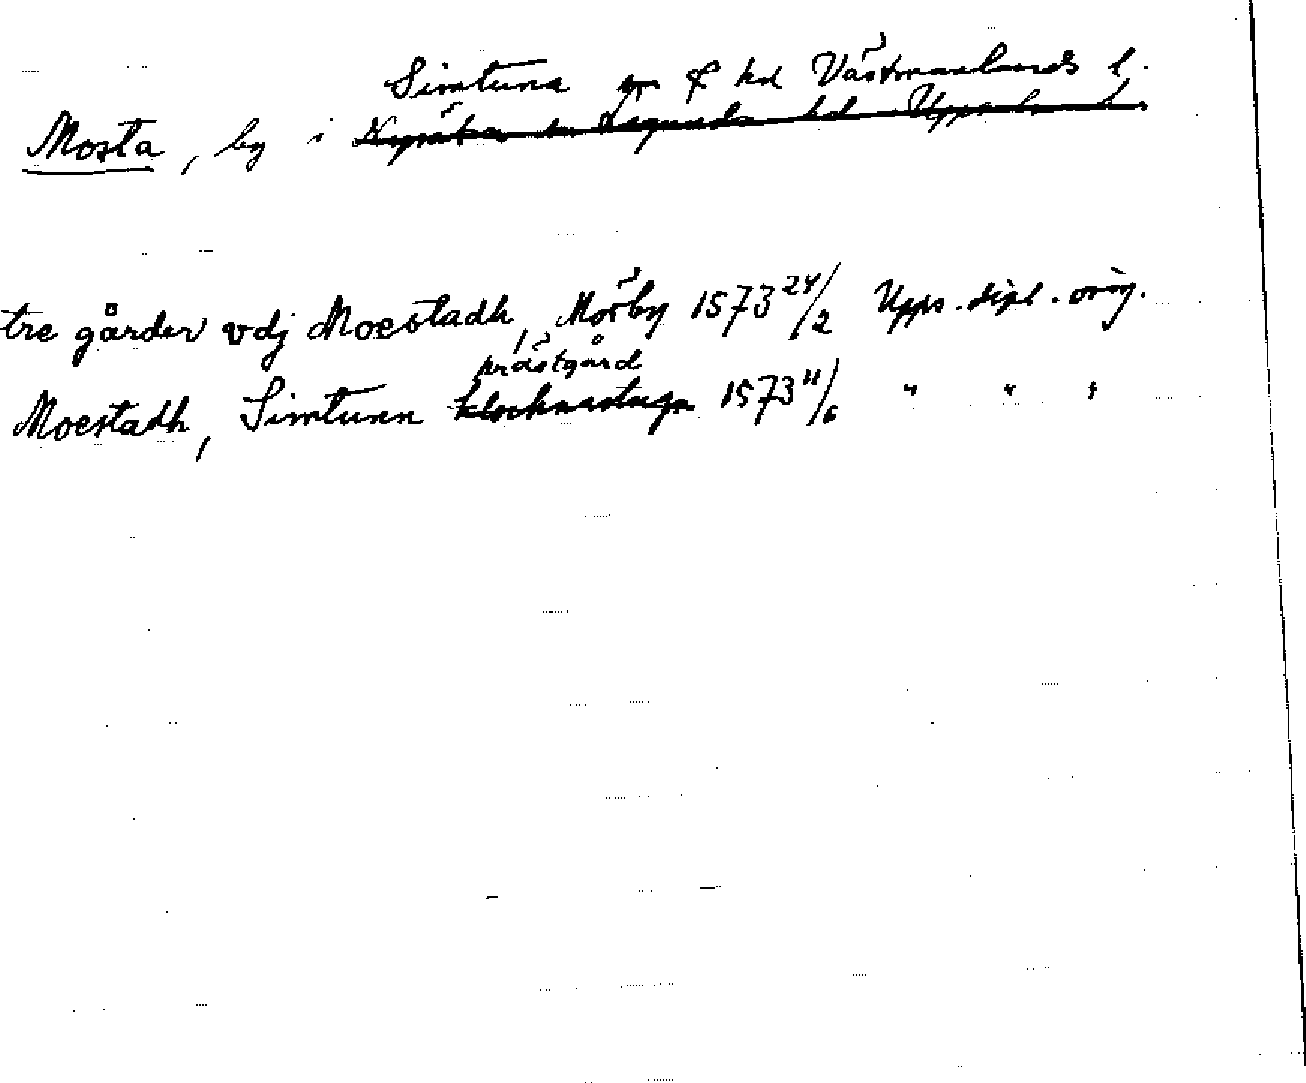 Simtuna sn & hd Västmanlands l.
Mosta, by i Nysätra sn Lagunda hd Uppsala l.
tre gårder vdj Moestadh, Mörby 1573 24/2 Upps. dipl. orig.
prästgård
Moestadh, Simtuna klockarstuga 1573 11/6 " " "